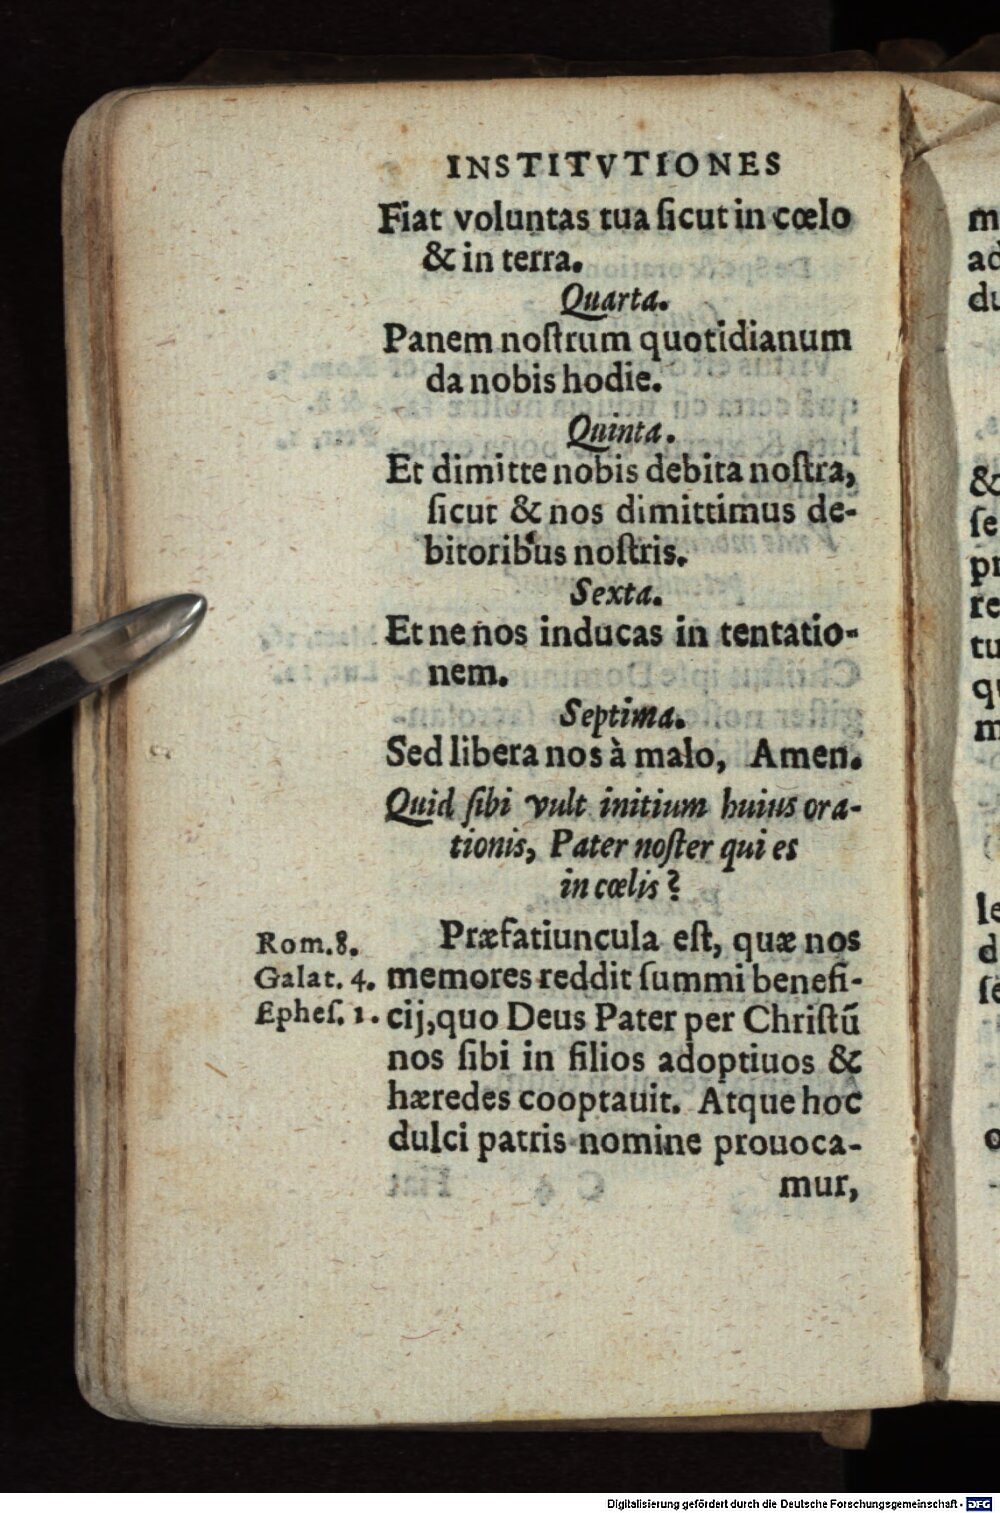 INSTITVTIONES
Fiat voluntas tua ſicut in cœlo
& in terra.
Quarta.
Panem noſtrum quotidianum
da nobis hodie.
Quinta.
Et dimitte nobis debita noſtra,
ſicut & nos dimittimus de-
bitoribus noſtris.
Sexta.
Et ne nos inducas in tentatio-
nem.
Septima.
Sed libera nos à malo, Amen.
Quid ſibi vult initium huius ora-
tionis, Pater noſter qui es
in cœlis?
Præfatiuncula eſt, quæ nos
memores reddit ſummi benefi-
cij, quo Deus Pater per Chriſtū
nos ſibi in filios adoptiuos &
hæredes cooptauit. Atque hoc
dulci patris nomine prouoca-
mur,
Rom. 8.
Galat. 4.
Epheſ. 1.
Digitalisierung gefördert durch die Deutsche Forschungsgemeinschaft - DFG